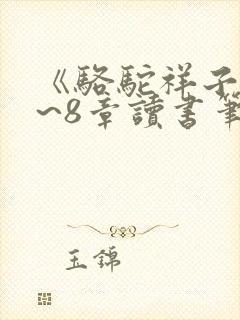 《駱駝祥子
~8章讀書筆
玉錦